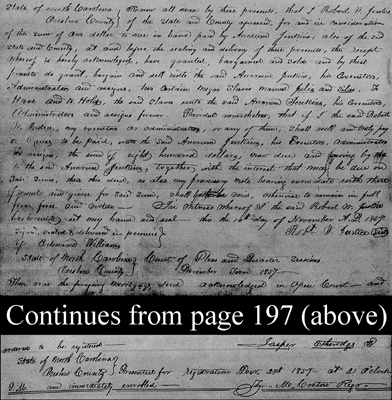 State of North Carolina } Know all men by these presents, that I Robert W.
Onslow County } of the State and County aforesaid, for and in consideration
of the sum of one dollar to me in hand paid by Amariah Jenkins, also of the said
State and County, at and before the sealing and delivery of these presents, the receipt
whereof is hereby acknowledged, have granted, bargained and sold, and by these
presents do grant, bargain and sell unto the said his Executors,
Administrators and assigns, two certain Negro Slaves named and To
Have and to Hold, the said Slaves unto the said his Executors
Administrators and assigns forever. Provided nevertheless, that if I the said Robert
W. my executors or administrators, or any of them, shall well and truly pay
or cause to be paid, unto the said his Executors, Administrators
or assigns, the sum of eight hundred dollars, now due and owing by
to the said together, with the interest that may be due on
said sum, then this deed, as also my promissory note bearing even date with these
presents and given for said sum, shall be void, otherwise to remain in full
force and virtue — In Witness whereof I the said Robert W.
hereunto set my hand and seal this the 16th day of November A.D. 1857
Signed, sealed & delivered in presence } Robt. W. Seal
of Edward Williams
State of North Carolina } Court of Pleas and Quarter Sessions
Onslow County } December Term 1857—
Then was the foregoing mortgage deed acknowledged in open Court and
Continues from page 197 (above)
ordered to be registered Jasper Etheredge
State of North Carolina
Onslow County } Presented for registration Decr. 1857 at 2 o'clock
P.M. and immediately enrolled Regr.